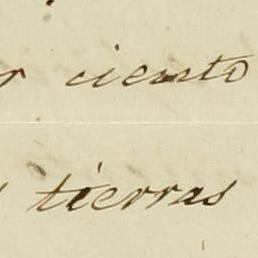 r ciento
tierras